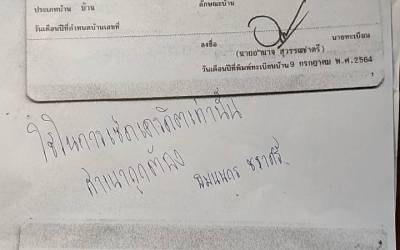 ประเภทบ้าน บ้าน ลักษณะบ้าน
วันเดือนปีที่กำหนดบ้านเลขที่
ลงชื่อ นายทะเบียน
(นายอำนาจ สุวรรณชาตรี)
วันเดือนปีที่พิมพ์ทะเบียนบ้าน 9 กรกฎาคม พ.ศ.2564
ใช้ในการเช็คเครดิตเท่านั้น
สำเนาถูกต้อง